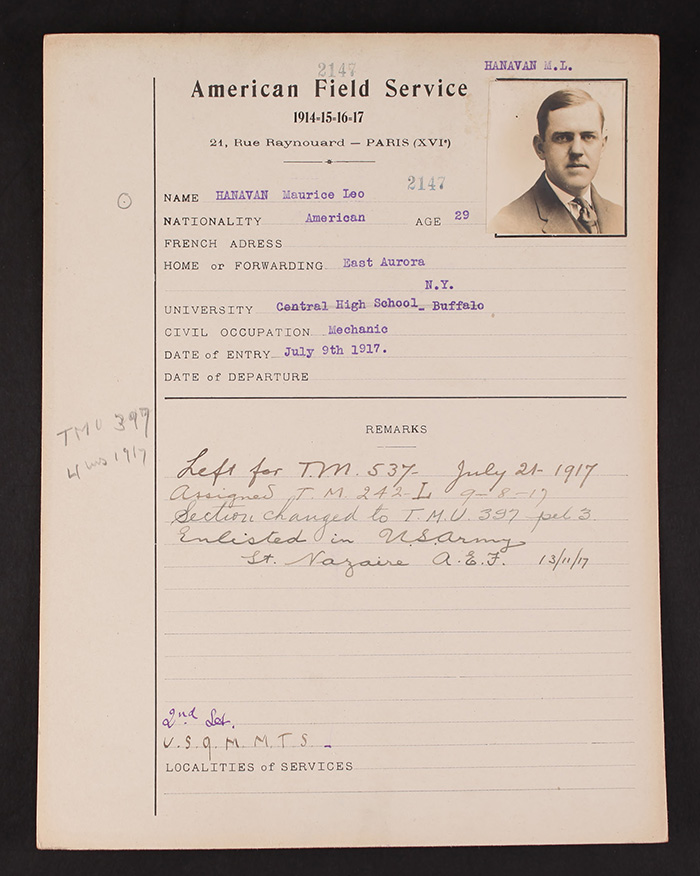 2147
HANAVAN M.L.
American Field Service
1914-15-16-17
21, Rue Raynouard — PARIS (XVIe)
2147
NAME HANAVAN Maurice Leo
NATIONALITY American AGE 29
FRENCH ADRESS
HOME or FORWARDING East Aurora
N.Y.
UNIVERSITY Central High School_ Buffalo
CIVIL OCCUPATION Mechanic
DATE of ENTRY July 9th 1917.
DATE of DEPARTURE
TMU 397
4 1917
REMARKS
Left for T.M. 537- July 21- 1917
Assigned T.M. 242-L 9-8-17
Section changed to T.M.U. 397 pel 3
Enlisted in U.S. Army
St. Nazaire A.E.F. 13/11/17
2nd
U.S.Q.M.M.T.S.
LOCALITIES of SERVICES